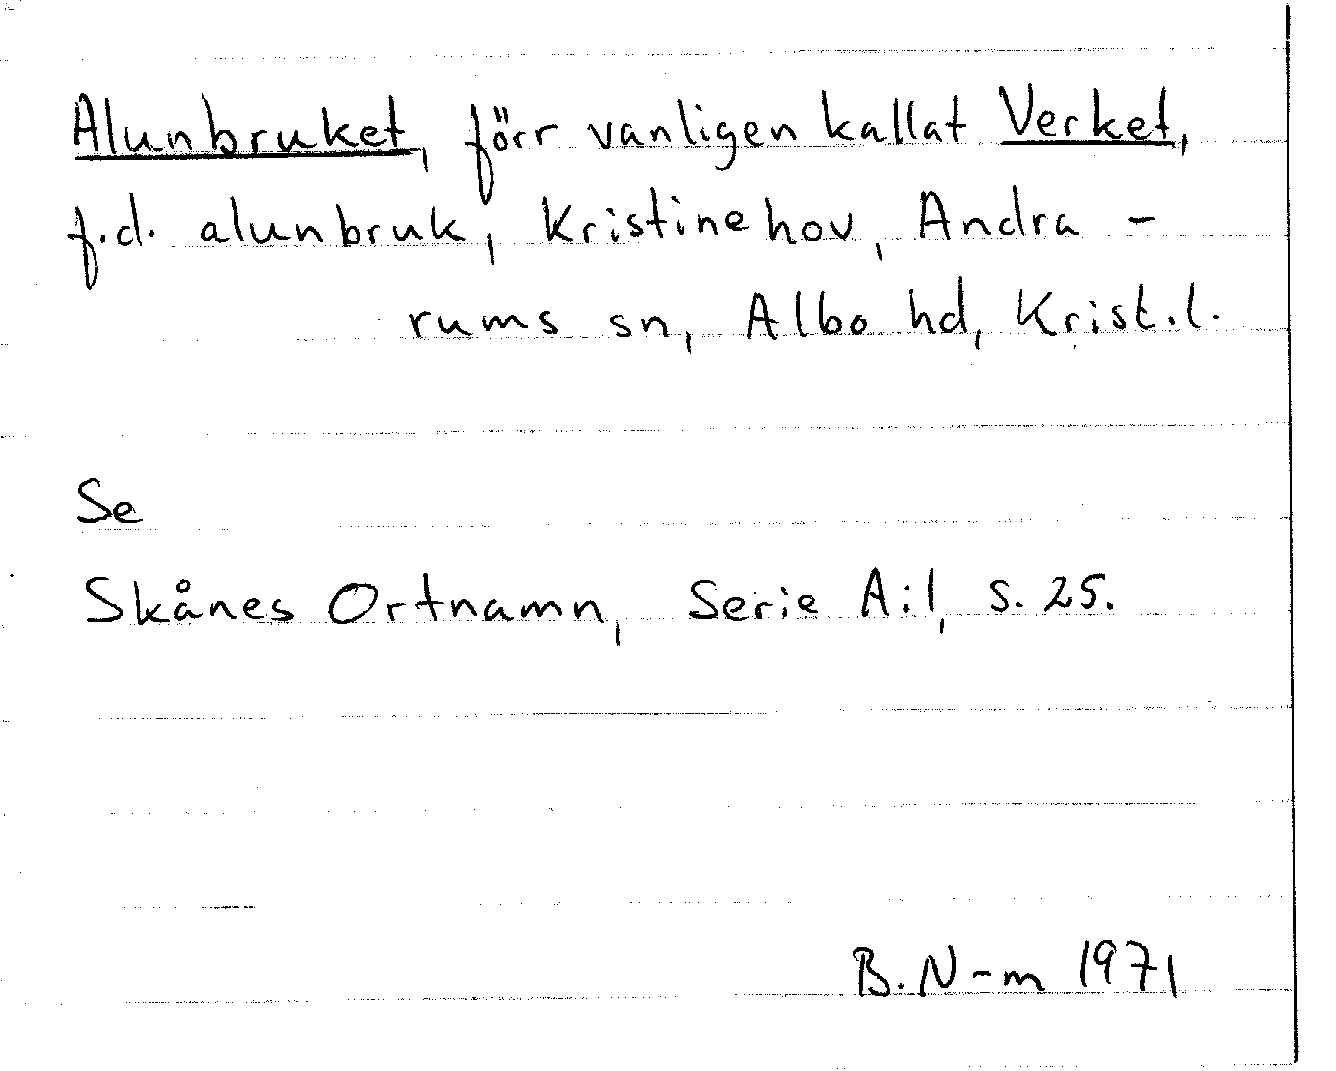 Alunbruket, förr vanligen kallat Verket,
f.d. alunbruk, Kristinehov, Andra-
rums sn, Albo hd, Krist.l.
Se
Skånes Ortnamn, Serie A:1, s. 25.
B. N-m 1971